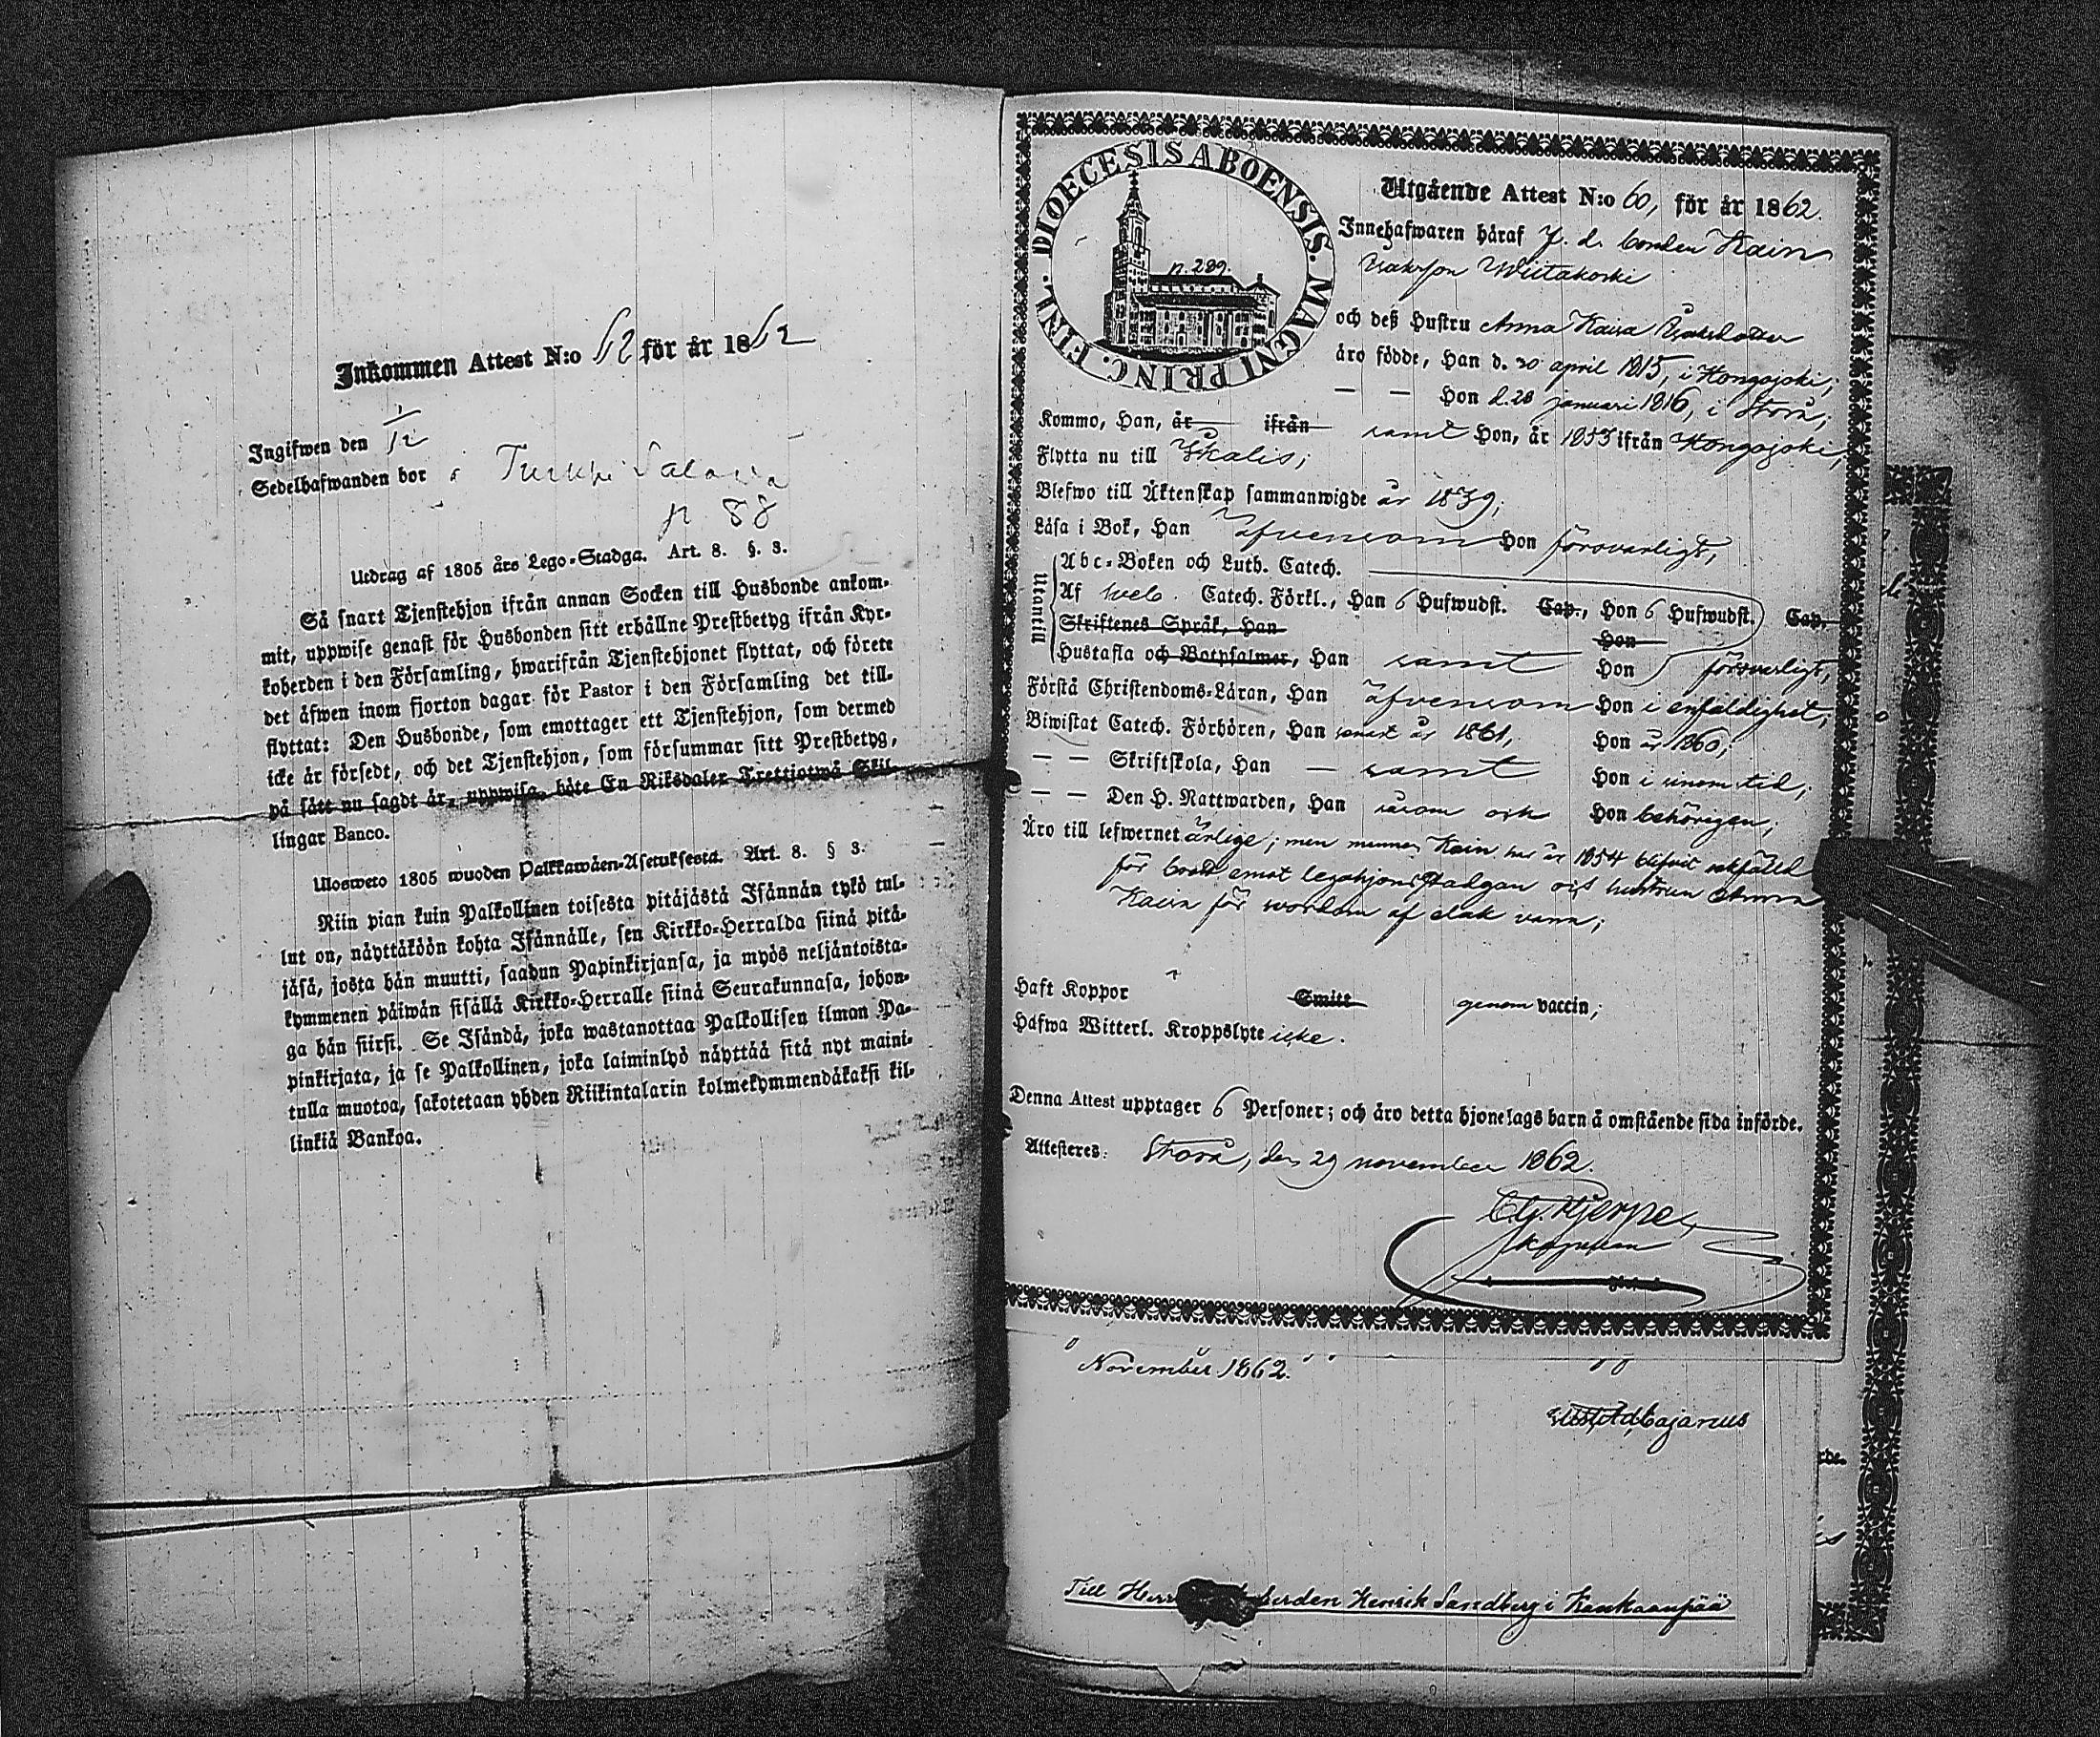 Inkommen Attest N:o 62 för år 1862
Ingifwen den 1/12
Sedelhafwanden bor i
p 88
Utdrag af 1805 års Lego-Stadga. Art. 8. §. 3.
Så snart Tjenstehjon ifrån annan Socken till Husbonde ankom-
mit, uppwise genast för Husbonden sitt erhållne Prestbetyg ifrån Kyr-
koherden i den Församling, hwarifrån Tjenstehjonet flyttat, och förete
det äfwen inom fjorton dagar för Pastor i den Församling det till-
flyttat: Den Husbonde, som emottager ett Tjenstehjon, som dermed
icke är försedt, och det Tjenstehjon, som försummar sitt Prestbetyg,
på sätt nu sagdt är, uppwisa, böte En Riksdaler Trettiotwå Skil-
lingar Banco.
Ulosweto 1805 wuoden Palkkawäen-Asetuksesta. Art. 8. § 3.
Niin pian kuin Palkollinen toisesta pitäjästä Isännän tykö tul-
lut on, näyttäköön kohta Isännälle, sen Kirkko-Herralda siinä pitä-
jäsä, josta hän muutti, saadun Papinkirjansa, ja myös neljäntoista-
kymmenen päiwän sisällä Kirkko-Herralle siinä Seurakunnasa, johon-
ga hän siirsi. Se Isändä, joka wastanottaa Palkollisen ilman Pa-
pinkirjata, ja se Palkollinen, joka laiminlyö näyttää sitä nyt maini-
tulla muotoa, sakotetaan yhden Riikintalarin kolmekymmendäkaksi kil-
linkiä Bankoa.
DIOECESIS ABOENSIS. MAGNI PRINC. FINL.
p. 289.
Utgående Attest N:o 60, för år 1862.
Innehafwaren häraf f. d. bonden Kain
Isaksson Wiitakoski
och deß Hustru Anna Kaisa Isaksdotter
äro födde, Han d. 20 april 1815, i Kongojoki;
— — Hon d. 28 januari 1816, i Storå;
Kommo, Han, år ifrån samt Hon, år 1853 ifrån Kongojoki;
Flytta nu till Ikalis;
Blefwo till Äktenskap sammanwigde år 1839;
Läsa i Bok, Han äfvensom Hon försvarligt;
Utantill
Abc-Boken och Luth. Catech.
Af Web. Catech. Förkl., Han 6 Hufwudst. Cap., Hon 6 Hufwudst. Cap.
Skriftenes Språk, Han Hon
Hustafla och Botpsalmer, Han samt Hon försvarligt;
Förstå Christendoms-Läran, Han äfvensom Hon i enfaldighet;
Biwistat Catech. Förhören, Han senast år 1861, Hon år 1860;
— — Skriftskola, Han — samt Hon i sinom tid;
— — Den H. Nattwarden, Han såsom ock Hon behörigen;
Äro till lefwernet ärlige; men mannen Kain har år 1854 blifvit sakfälld
för brott emot legohjonsstadgan och hustrun Anna
Kaisa för
Haft Koppor Smitt genom vaccin;
Hafwa Witterl. Kroppslyte icke.
Denna Attest upptager 6 Personer; och äro detta hjonelags barn å omstående sida införde.
Attesteres: Storå, den 29 november 1862.
C.G. Hjerpe
November 1862.
Cajanus
Till Herr Henrik Sandberg i Kankaanpää